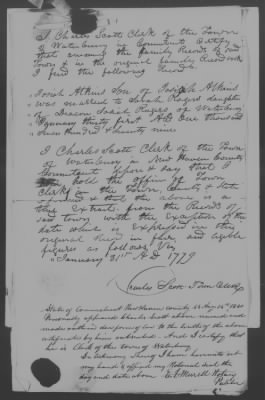 I Charles Scott Clerk of the Town
of Waterbury in Connecticut Certify
that among the Family Records of said
Town & in the original Family Record book
I find the following Record
"Josiah Atkins Son of Josiah Atkins
was married to Sarah Rogers daughter
of Deacon Josiah Rogers of Waterbury
January thirty first A.D. One thousand
Seven Hundred & Seventy nine
I Charles Scott Clerk of the Town
of Waterbury in New Haven County
Connecticut depose & say that I
hold the office of Town
Clerk in the Town, County & State
aforesaid & that the above is a
true Extract from the Records of
said town with the exception of the
date which is expressed in the
original in fair and legible
figures as follows Viz
"January 31st A.D. 1779
Charles Scott Town Clerk
State of Connecticut New Haven County ss Aug 14th
Personally appeared Charles Scott above named and
made oath in due form of law to the truth of the above
certificate by him subscribed. And I certify that
he is Clerk of the town of Waterbury
In testimony whereof I have hereunto set
my hand & affixed my Notarial seal the
day and date above.
Notary
Public